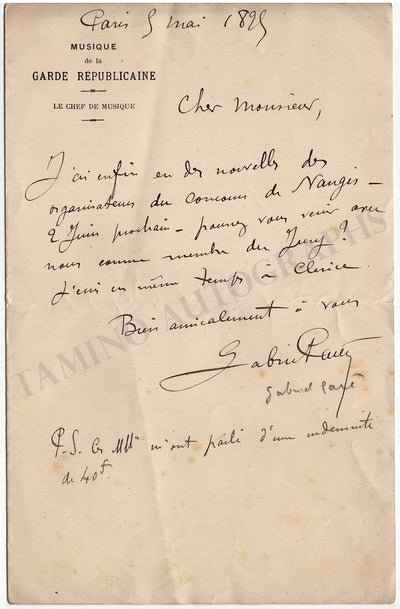 Paris 5 mai 1895
MUSIQUE
de la
GARDE RÉPUBLICAINE
LE CHEF DE MUSIQUE
Cher Monsieur,
J'ai enfin eu des nouvelles des
organisateurs du concours de Nangis –
2 Juin prochain – pouvez vous venir avec
nous comme membre du Jury ?
J'écris en même temps à Clérice.
Bien amicalement à vous
Gabriel Parès
Gabriel Parè
P.S. Ces MMrs m'ont parlé d'une indemnité
de 40f.
TAMINO AUTOGRAPHS